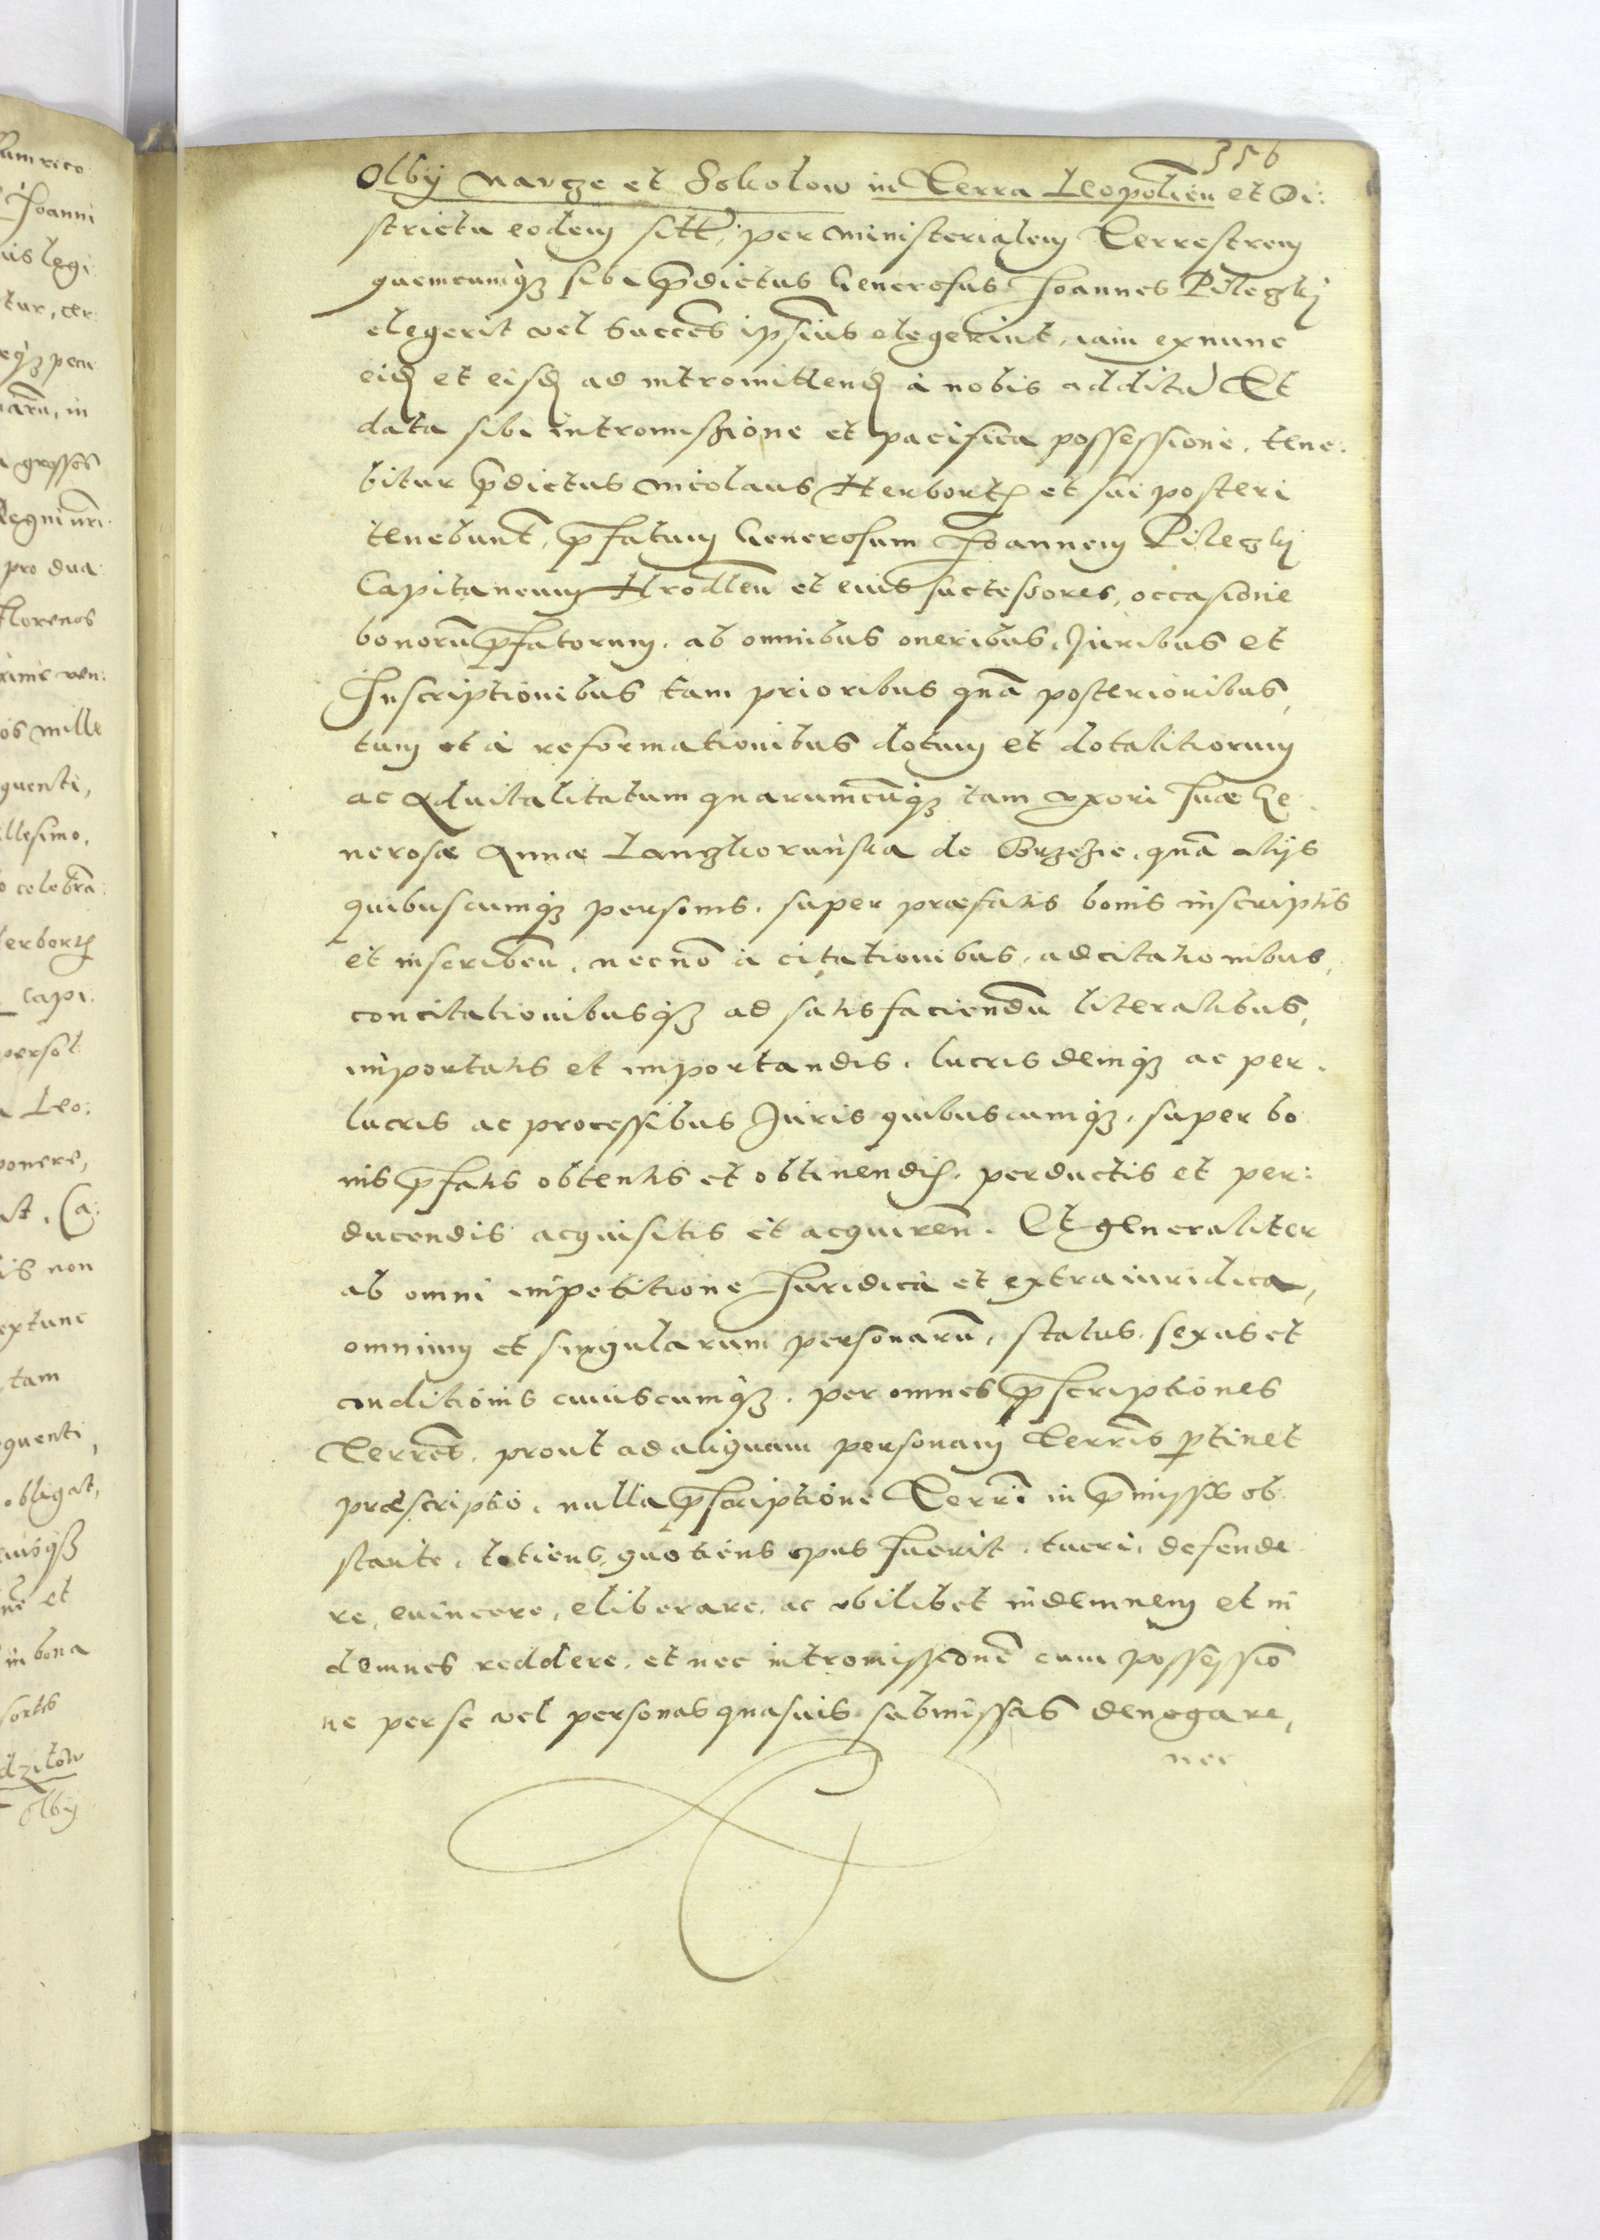 356
Olby Narge et Sokolow in Terra Leopolieñ et Di:
strictu eodem sitt, per Ministerialem Terrestrem
quemcumq3 sibi pdictus Generosus Joannes Pileczkj
elegerit vel Succes ipsius elegerint, iam exnunc
eid et eisd ad intromittend à nobis additu) Et
data sibi intromissione et pacifica possessione, tene:
bitur pdictus Nicolaus Herborth et sui posteri
tenebunt, pfatum Generosum Joannem Pileczkj
Capitaneum Hrodleñ et eius successores, occasione
bonorū pfatorum, ab omnibus oneribus, Juribus et
Inscriptionibus tam prioribus quā posterioribus,
tum et à reformationibus dotum et dotalitiorum
ac Aduitalitatum quarumcūq3 tam vxori suæ Ge
nerosæ Annæ Lanczkorunska de Brzezie, quā alijs
quibuscumq3 personis, super præfatis bonis inscriptis
et inscribeñ, necnō à citationibus, adcitationibus,
concitationibusq3 ad satisfaciendū literalibus,
importatis et importandis, lucris deniq3 ac per
lucris ac processibus Juris quibuscumq3, super bo
nis pfatis obtentis et obtinendis, perductis et per:
ducendis acquisitis et acquireñ. Et generaliter
ab omni impetitione Juridica et extraiuridica,
omnium et singularum personarū, status, sexus et
conditionis cuiuscumq3, per omnes pscriptiones
Terrēs, prout ad aliquam personam Terrīs ptinet
præscriptio, nulla pscriptione Terrī in pmissis ob
stante, totiens quotiens opus fuerit, tueri, defende
re, euincere, eliberare, ac vbilibet indemnem et in
demnes reddere, et nec intromissionē cum possessio
ne per se vel personas quasuis submissas denegare,
nec